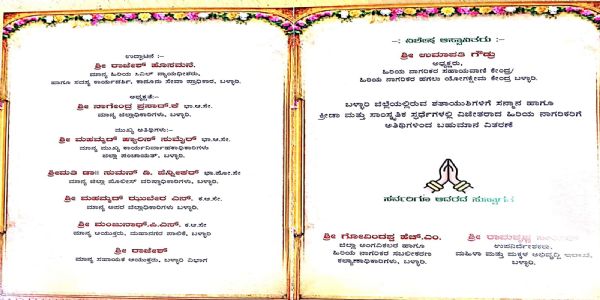 ಉದ್ಘಾಟನೆ :-
ಶ್ರೀ ರಾಜೇಶ್ ಹೊಸಮನೆ.
ಮಾನ್ಯ ಹಿರಿಯ ಸಿವಿಲ್ ನ್ಯಾಯಾಧೀಶರು,
ಹಾಗೂ ಸದಸ್ಯ ಕಾರ್ಯದರ್ಶಿ, ಕಾನೂನು ಸೇವಾ ಪ್ರಾಧಿಕಾರ, ಬಳ್ಳಾರಿ.
ಅಧ್ಯಕ್ಷತೆ:-
ಶ್ರೀ ನಾಗೇಂದ್ರ ಪ್ರಸಾದ್.ಕೆ ಭಾ.ಆ.ಸೇ.
ಮಾನ್ಯ ಜಿಲ್ಲಾಧಿಕಾರಿಗಳು, ಬಳ್ಳಾರಿ.
ಮುಖ್ಯ ಅತಿಥಿಗಳು:-
ಶ್ರೀ ಮಹಮ್ಮದ್ ಹ್ಯಾರಿಸ್ ಸುಮೈರ್ ಭಾ.ಆ.ಸೇ.
ಮಾನ್ಯ ಮುಖ್ಯ ಕಾರ್ಯನಿರ್ವಾಹಕಾಧಿಕಾರಿಗಳು
ಜಿಲ್ಲಾ ಪಂಚಾಯತ್, ಬಳ್ಳಾರಿ.
ಶ್ರೀಮತಿ ಡಾ॥ ಸುಮನ್ ಡಿ. ಪೆನ್ನೇಕರ್ ಭಾ.ಪೋ.ಸೇ
ಮಾನ್ಯ ಜಿಲ್ಲಾ ಪೊಲೀಸ್ ವರಿಷ್ಠಾಧಿಕಾರಿಗಳು, ಬಳ್ಳಾರಿ.
ಶ್ರೀ ಮಹಮ್ಮದ್ ಝುಬೇರ ಎನ್. ಕ.ಆ.ಸೇ
ಮಾನ್ಯ ಅಪರ ಜಿಲ್ಲಾಧಿಕಾರಿಗಳು, ಬಳ್ಳಾರಿ.
ಶ್ರೀ ಮಂಜುನಾಥ್.ಪಿ.ಎಸ್. ಕ.ಆ.ಸೇ
ಮಾನ್ಯ ಆಯುಕ್ತರು, ಮಹಾನಗರ ಪಾಲಿಕೆ, ಬಳ್ಳಾರಿ
ಶ್ರೀ ರಾಜೇಶ್
ಮಾನ್ಯ ಸಹಾಯಕ ಆಯುಕ್ತರು, ಬಳ್ಳಾರಿ ವಿಭಾಗ
-: ವಿಶೇಷ ಆಹ್ವಾನಿತರು :-
ಶ್ರೀ ಉಮಾಪತಿ ಗೌಡ್ರು
ಅಧ್ಯಕ್ಷರು,
ಹಿರಿಯ ನಾಗರಿಕರ ಸಹಾಯವಾಣಿ ಕೇಂದ್ರ/
ಹಿರಿಯ ನಾಗರಿಕರ ಹಗಲು ಯೋಗಕ್ಷೇಮ ಕೇಂದ್ರ ಬಳ್ಳಾರಿ.
ಬಳ್ಳಾರಿ ಜಿಲ್ಲೆಯಲ್ಲಿರುವ ಶತಾಯುಶಿಗಳಿಗೆ ಸನ್ಮಾನ ಹಾಗೂ
ಕ್ರೀಡಾ ಮತ್ತು ಸಾಂಸ್ಕೃತಿಕ ಸ್ಪರ್ಧೆಗಳಲ್ಲಿ ವಿಜೇತರಾದ ಹಿರಿಯ ನಾಗರಿಕರಿಗೆ
ಅತಿಥಿಗಳಿಂದ ಬಹುಮಾನ ವಿತರಣೆ
ಸರ್ವರಿಗೂ ಆದರದ ಸ್ವಾಗತ
ಶ್ರೀ ಗೋವಿಂದಪ್ಪ ಹೆಚ್.ಎಂ.
ಜಿಲ್ಲಾ ಅಂಗವಿಕಲರ ಹಾಗೂ
ಹಿರಿಯ ನಾಗರಿಕರ ಸಬಲೀಕರಣ
ಕಲ್ಯಾಣಾಧಿಕಾರಿಗಳು, ಬಳ್ಳಾರಿ.
ಶ್ರೀ
ಉಪನಿರ್ದೇಶಕರು,
ಮಹಿಳಾ ಮತ್ತು ಮಕ್ಕಳ ಅಭಿವೃದ್ಧಿ ಇಲಾಖೆ,
ಬಳ್ಳಾರಿ.